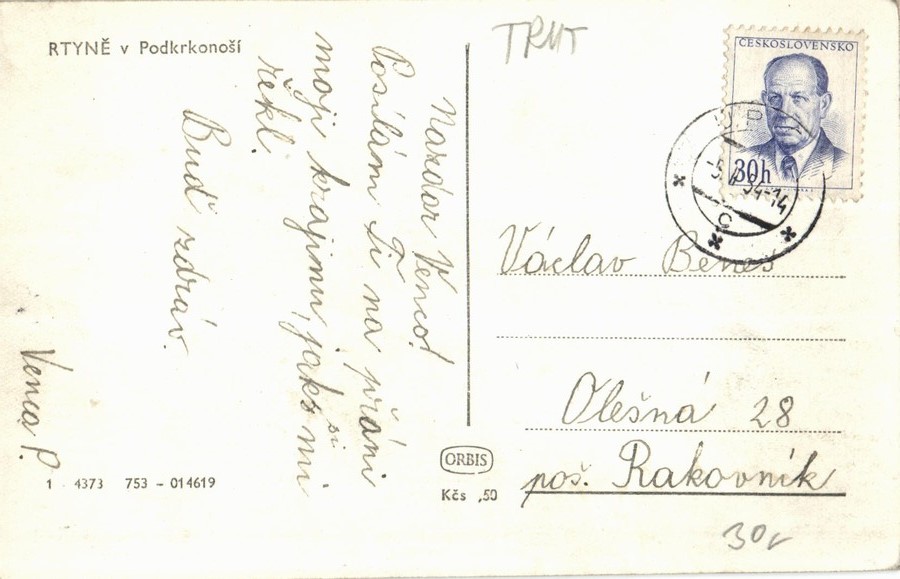 RTYNĚ v Podkrkonoší
Nazdar Venco!
Posílám Ti na přání
moji krajinu, jak si mi
řekl.
Buď zdráv.
Venca P.
1 4373 753 - 014619
ORBIS
Kčs ,50
TRUT
ČESKOSLOVENSKO
30h
Václav Beneš
Olešná 28
poš. Rakovník
30,-